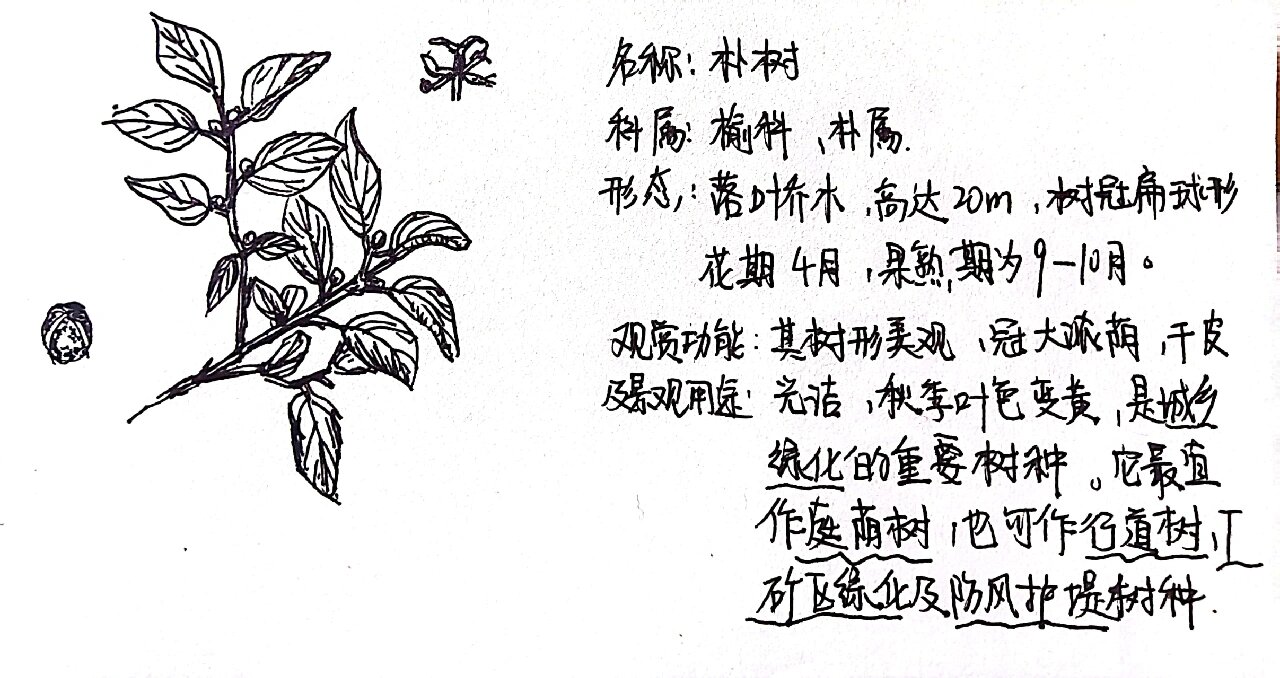 名称：朴树
科属：榆科、朴属.
形态：落叶乔木，高达20m，树冠扁球形
花期4月，果熟期为9—10月。
观赏功能：其树形美观，冠大浓荫，干皮
及景观用途：光洁，秋季叶色变黄，是城乡
绿化的重要树种。它最宜
作庭荫树，也可作行道树，工
矿区绿化及防风护堤树种.